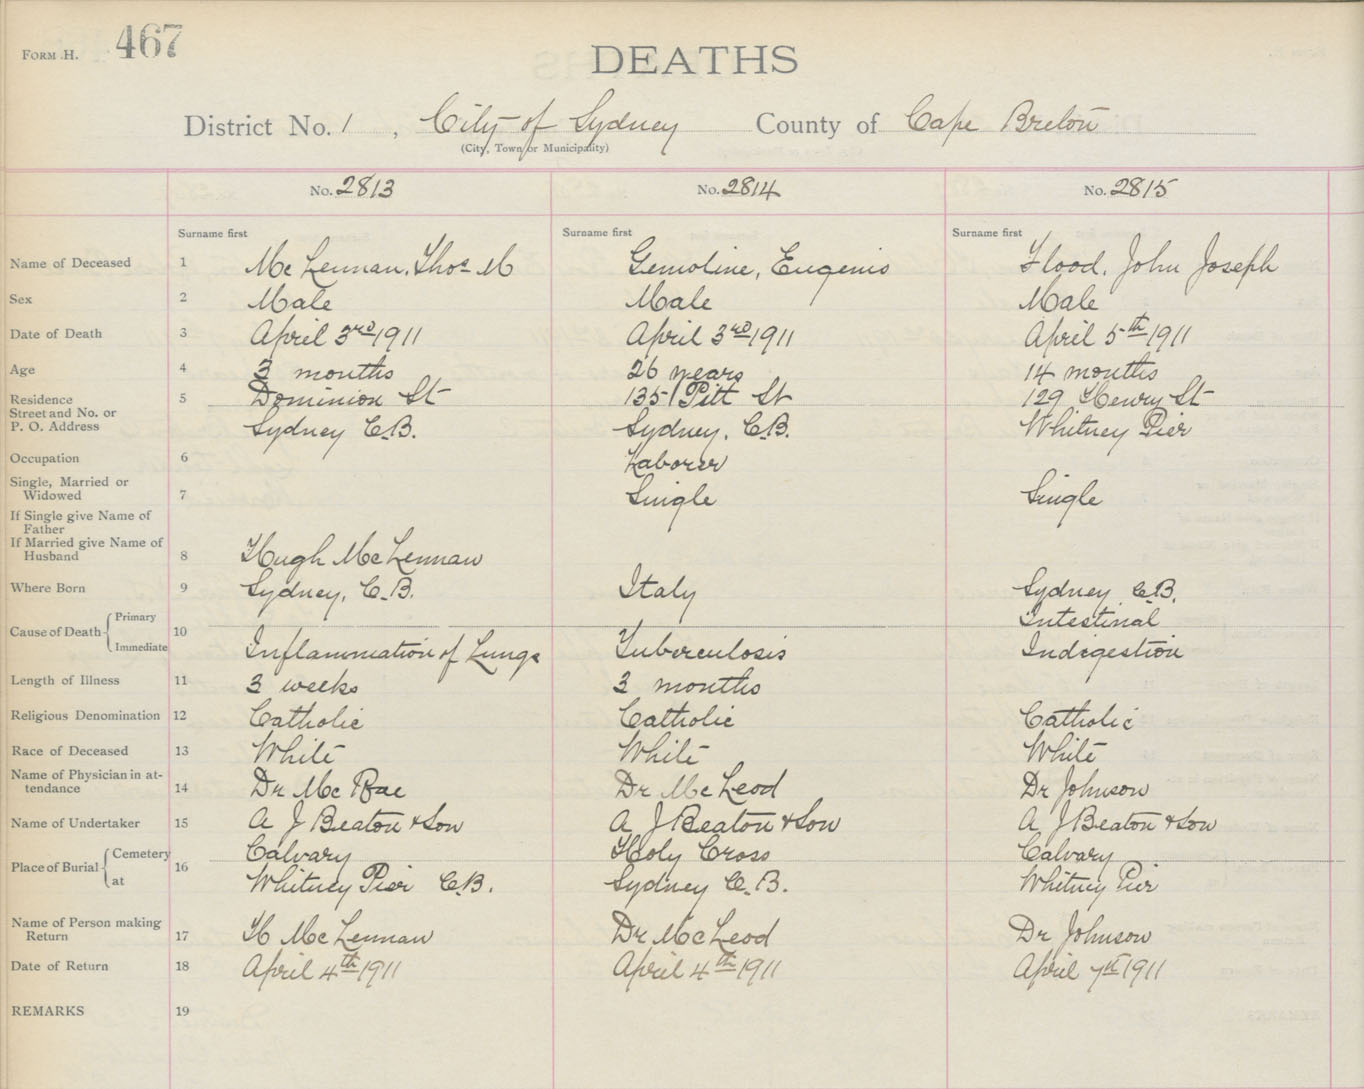 FORM H. 467
DEATHS
District No. 1, City of Sydney County of Cape Breton
(City, Town or Municipality)
No. 2813 No. 2814 No. 2815
Surname first Surname first Surname first
Name of Deceased 1 Mc Lennan, Thos M Gemoline, Eugenio Flood, John Joseph
Sex 2 Male Male Male
Date of Death 3 April 3rd 1911 April 3rd 1911 April 5th 1911
Age 4 3 months 26 years 14 months
Residence 5 Dominion St 135 Pitt St 129 Henry St
Street and No. or
P. O. Address Sydney C.B. Sydney, C.B. Whitney Pier
Occupation 6 Laborer
Single, Married or
Widowed 7 Single Single
If Single give Name of
Father
If Married give Name of
Husband 8 Hugh McLennan
Where Born 9 Sydney, C.B. Italy Sydney C.B.
Cause of Death Primary 10 Intestinal
Immediate Inflammation of Lungs Tuberculosis Indigestion
Length of Illness 11 3 weeks 3 months
Religious Denomination 12 Catholic Catholic Catholic
Race of Deceased 13 White White White
Name of Physician in at-
tendance 14 Dr Mc Rae Dr McLeod Dr Johnson
Name of Undertaker 15 A J Beaton & Son A J Beaton & Son A J Beaton & Son
Place of Burial Cemetery 16 Calvary Holy Cross Calvary
at Whitney Pier C.B. Sydney C.B. Whitney Pier
Name of Person making
Return 17 H McLennan Dr McLeod Dr Johnson
Date of Return 18 April 4th 1911 April 4th 1911 April 7th 1911
REMARKS 19